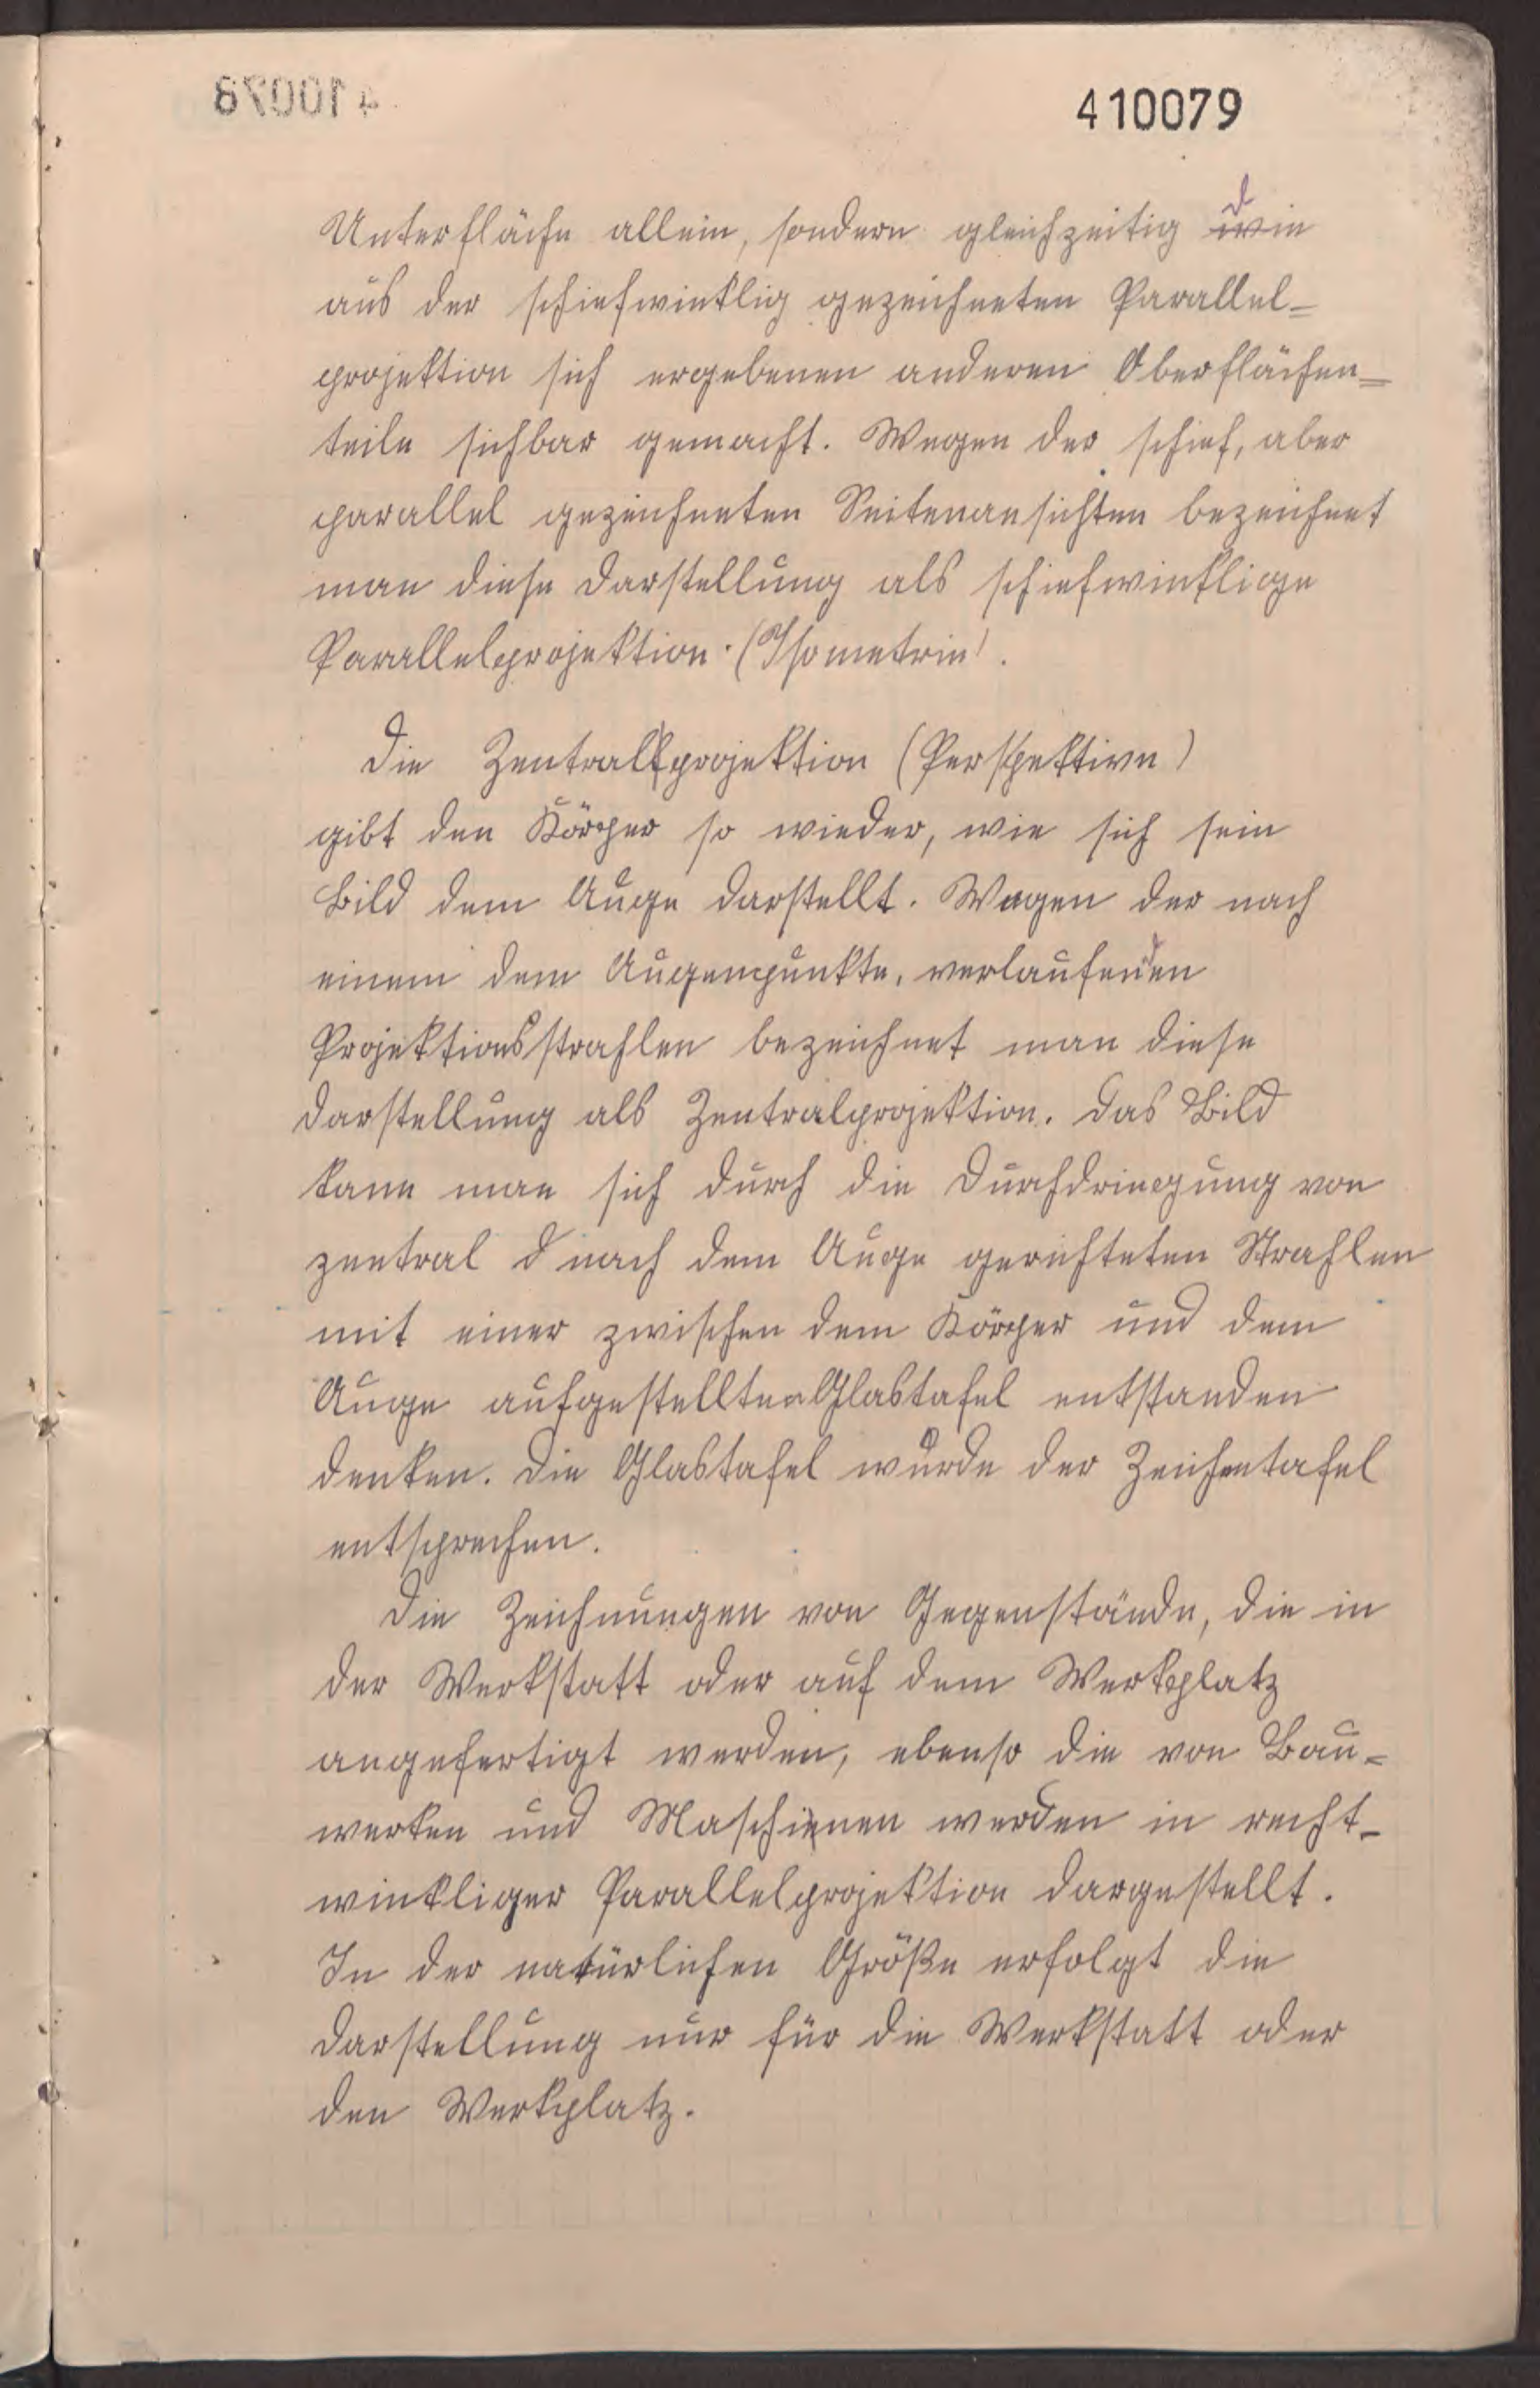 410079
Unterfläche allein, sondern gleichzeitig die
aus der schiefwinklig gezeichneten Parallel-
projektion sich ergebenen anderen Oberflächen-
teile sichbar gemacht. Wegen der schief, aber
parallel gezeichneten Seitenansichten bezeichnet
man diese Darstellung als schiefwinklige
Parallelprojektion (Isometrie).
Die Zentralprojektion (Perspektive)
gibt den Körper so wieder, wie sich sein
Bild dem Auge darstellt. Wegen der nach
einem dem Augenpunkte, verlaufenden
Projektionsstrahlen bezeichnet man diese
Darstellung als Zentralprojektion. Das Bild
kann man sich durch die Durchdringung von
zentral d nach dem Auge gerichteten Strahlen
mit einer zwischen dem Körper und dem
Auge aufgestellten Glastafel entstanden
denken. Die Glastafel würde der Zeichentafel
entsprechen.
Die Zeichnungen von Gegenstände, die in
der Werkstatt oder auf dem Werkplatz
angefertigt werden, ebenso die von Bau-
werken und Maschinen werden in recht-
winkliger Parallelprojektion dargestellt.
In der natürlichen Größe erfolgt die
Darstellung nur für die Werkstatt oder
den Werkplatz.